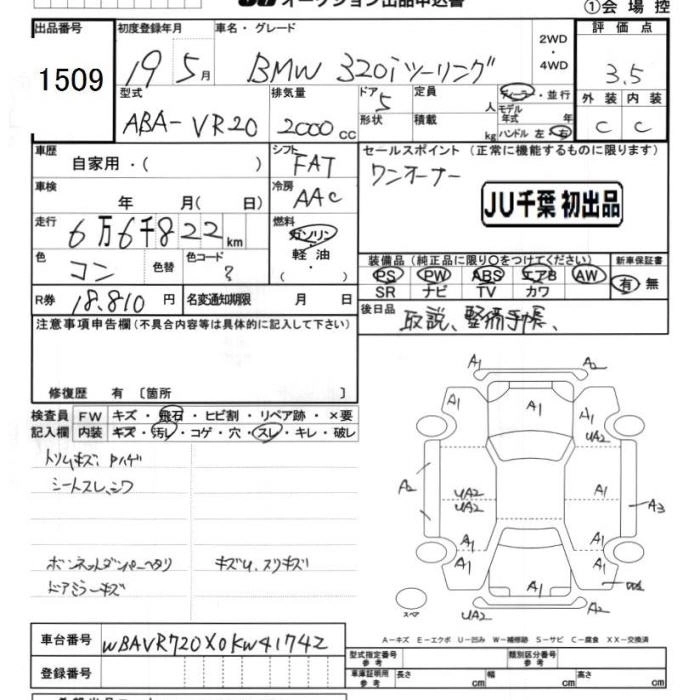 オークション出品申込書 ①会場控
出品番号 初度登録年月 車名・グレード 2WD・4WD 評価点
1509 19 5月 BMW 320iツーリング 3.5
型式 排気量 ドア 定員 ディーラー・並行 外装 内装
ABA-VR20 2000cc 5 人 モデル年式 年 C C
形状 積載 kg ハンドル 左・右
車歴 自家用・( ) シフト FAT セールスポイント (正常に機能するものに限ります)
車検 年 月( 日) 冷房 AAC ワンオーナー
JU千葉 初出品
走行 6万6千822km 燃料 ガソリン・軽油・
色 コン 色替 色コード ? 装備品(純正品に限り○をつけてください) 新車保証書
PS PW ABS エアB AW 有・無
SR ナビ TV カワ
R券 18,810円 名変通知期限 月 日 後日品 取説、整備手帳、
注意事項申告欄(不具合内容等は具体的に記入して下さい)
修復歴 有 〔箇所 〕
検査員 FW キズ・飛石・ヒビ割・リペア跡・×要
記入欄 内装 キズ・汚レ・コゲ・穴・スレ・キレ・破レ
トリムキズ、ハゲ
シートスレ、シワ
ボンネットダンパーヘタリ キズU、スリキズ
ドアミラーキズ
A1 A2
A1 A1 A1
UA2
A2 UA2 A1 A3
UA2 UA2
A1 A1
A1 A1
スペア UA2 A2
A-キズ E-エクボ U-凹み W-補修跡 S-サビ C-腐食 XX-交換済
車台番号 WBAVR720X0KW41742
型式指定番号 参考 類別区分番号 参考
登録番号 車庫証明用 参考 長さ cm 幅 cm 高さ cm